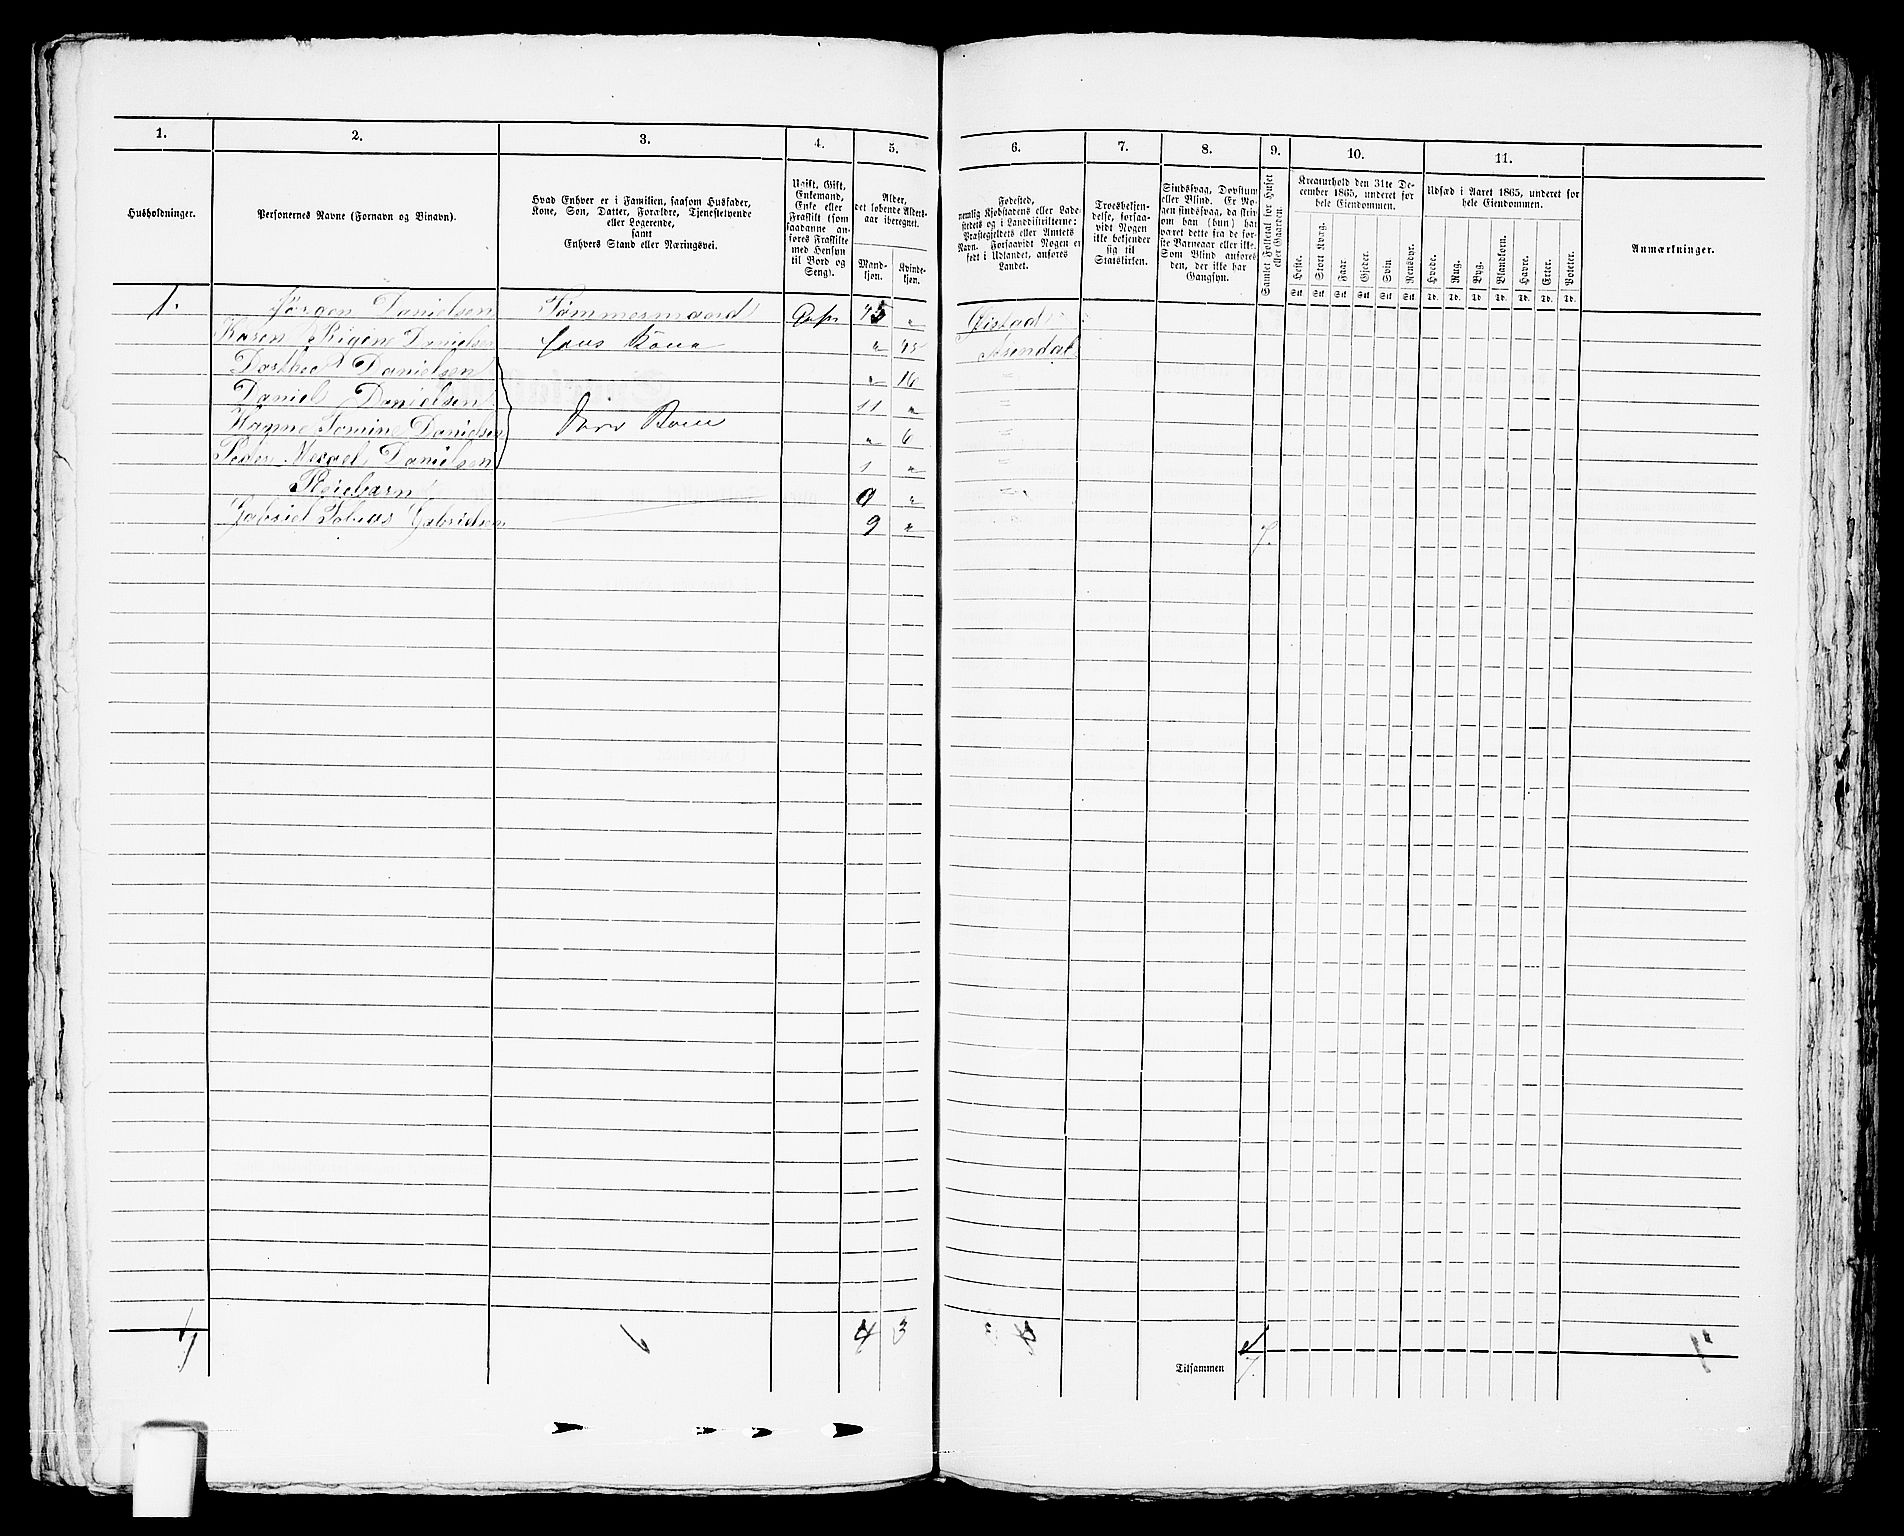 1. 2. 3. 4. 5. 6. 7. 8. 9. 10. 11.
Husholdninger.
Personernes Navne (Fornavn og Binavn).
Hvad Enhver er i Familien, saasom Husfader,
Kone, Søn, Datter, Forældre, Tjenestetyende
eller Logerende,
samt
Enhvers Stand eller Næringsvei.
Ugift, Gift,
Enkemand,
Enke eller
Fraskilt (som
saadanne an-
føres Fraskilte
med Hensyn
til Bord og
Seng).
Alder,
det løbende Alders-
aar iberegnet.
Mand-
kjøn.
Kvinde-
kjøn.
Fødested,
nemlig Kjøbstadens eller Lade-
stedets og i Landdistrikterne:
Præstegjeldets eller Amtets
Navn. Forsaavidt Nogen er
født i Udlandet, anføres
Landet.
Troesbekjen-
delse, forsaa-
vidt Nogen
ikke bekjender
sig til
Statskirken.
Sindssvag, Døvstum
eller Blind. Er No-
gen sindssvag, da skri-
ves, om han (hun) har
været dette fra de før-
ste Barneaar eller ikke.
Som Blind anføres
den, der ikke har
Gangsyn.
Samlet Folketal for Huset
eller Gaarden.
Kreaturhold den 31te De-
cember 1865, underet for
hele Eiendommen.
Heste. Stort Kvæg. Faar Gjeder. Svin Rensdyr.
Stk Stk Stk Stk Stk Stk
Udsæd i Aaret 1865, underet for
hele Eiendommen.
Hvede. Rug. Byg. Blandkorn. Havre. Erter. Poteter.
Td. Td. Td. Td. Td. Td. Td.
Anmærkninger.
1. Jørgen Danielsen Tømmermand Gift 45 "
Karen Danielsen hans Kone " 45 Arendal
Danielsen " 16 "
Daniel Danielsen 11 " "
Hanne Danielsen Børn " 6 "
Peder Danielsen 1 " "
Pleiebarn 0 " "
Gabriel Tobias Gabrielsen 9 " 7.
1 4 3
Tilsammen 7.